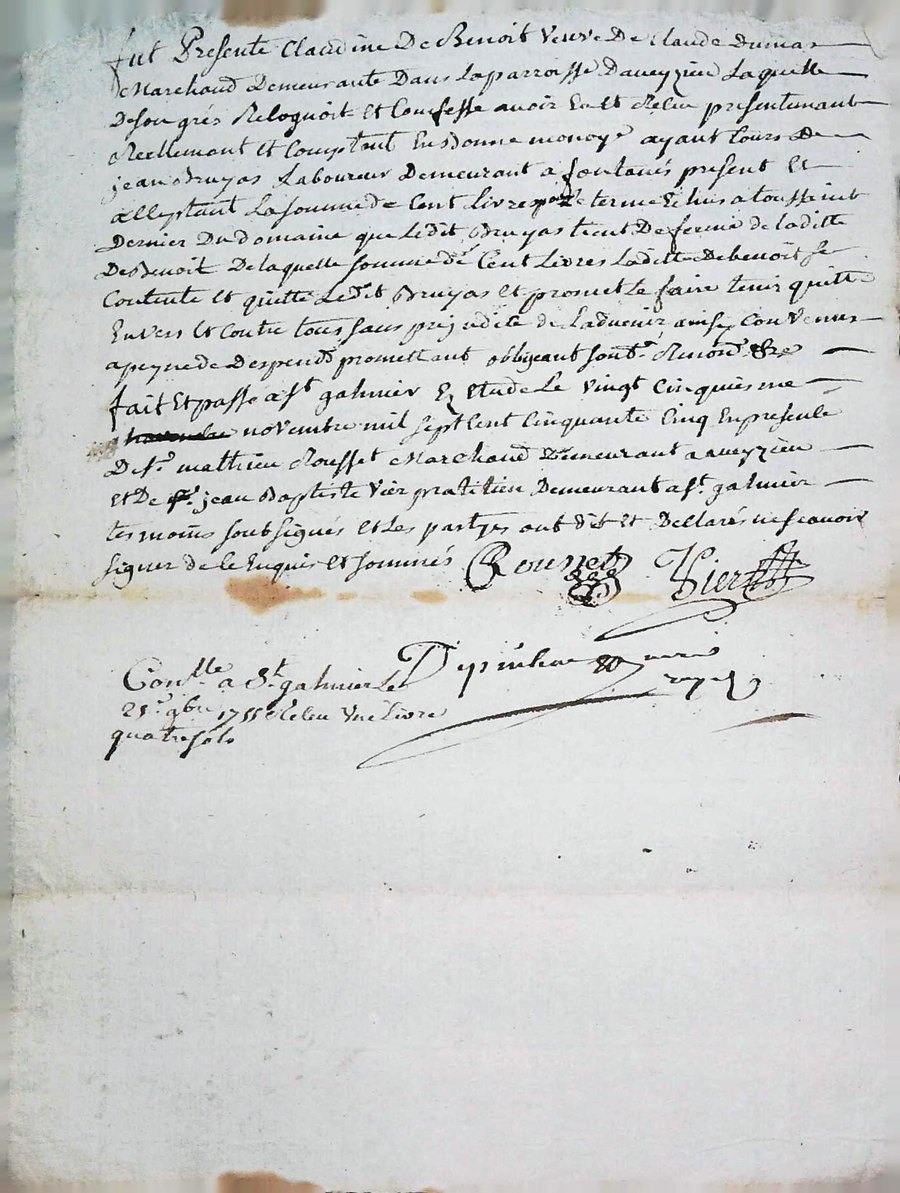 fut Presente Claudine De Benoit Veuve De Claude Dumas
Marchand Demeurante Dans La parroisse Daveyzieu Laquelle
De son grés Recognoit Et Confesse avoir Eu et Receu presentemant
Reellemant et Comptant En bonne monoye ayant Cours De
jean Bruyas Laboureur Demeurant a fontanés present Et
acceptant La somme de Cent Livres pour le terme Echus a toussaint
Dernier Du domaine que Ledit Bruyas tient De ferme de laditte
De Benoit De laquelle somme de Cent Livres Laditte Debenoit se
Contente et quitte Ledit Bruyas et promet le faire tenir quitte
Envers et Contre tous sans prejudice de Ladvenir ainsy Convenus
a peyne de Despends promettant obligeant soubt. Renon. &c
fait Et passé a st galmier En Etude Le vingt cinquiesme
novembre mil sept Cent Cinquante Cinq En presence
De sr. mathieu Rousset Marchand Demeurant a aveyzieu
et De sr. jean Baptiste Vier praticien Demeurant a st galmier
tesmoins soubsignés et Les partyes ont dit et Declarés ne scavoir
signer de ce Enquis et sommés Rousset Vier
Conlle a St galmier Le
25e 9bre 1755 Receu Une Livre
quatre sols